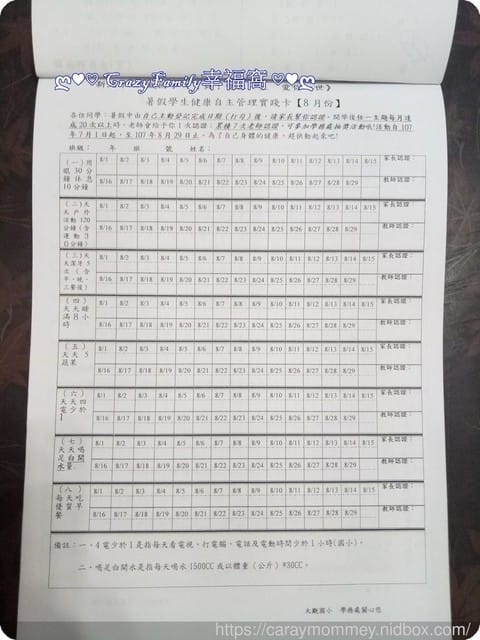 ღ♡ CrazyFamily幸福窩 ♡ღ
新
愛
世》
暑假學生健康自主管理實踐卡【8月份】
各位同學：暑假中由自己主動登記完成日期（打勾）後，請家長幫你認證，開學後任一主題每月達
成20次以上時，老師會給予你1次認證；累積7次老師認證，可參加學務處抽獎活動哦!活動自107
年7月1日起，至107年8月29日止。為了自己身體的健康，趕快動起來吧!
班級： 年 班 號 姓名：
（一）用眼30分鐘休息10分鐘
8/1 8/2 8/3 8/4 8/5 8/6 8/7 8/8 8/9 8/10 8/11 8/12 8/13 8/14 8/15 家長認證：
8/16 8/17 8/18 8/19 8/20 8/21 8/22 8/23 8/24 8/25 8/26 8/27 8/28 8/29 教師認證：
（二）天天戶外活動120分鐘(含運動30分鐘)
8/1 8/2 8/3 8/4 8/5 8/6 8/7 8/8 8/9 8/10 8/11 8/12 8/13 8/14 8/15 家長認證：
8/16 8/17 8/18 8/19 8/20 8/21 8/22 8/23 8/24 8/25 8/26 8/27 8/28 8/29 教師認證：
（三）天天潔牙5次（含早、晚、三餐後）
8/1 8/2 8/3 8/4 8/5 8/6 8/7 8/8 8/9 8/10 8/11 8/12 8/13 8/14 8/15 家長認證：
8/16 8/17 8/18 8/19 8/20 8/21 8/22 8/23 8/24 8/25 8/26 8/27 8/28 8/29 教師認證：
（四）天天睡滿8小時
8/1 8/2 8/3 8/4 8/5 8/6 8/7 8/8 8/9 8/10 8/11 8/12 8/13 8/14 8/15 家長認證：
8/16 8/17 8/18 8/19 8/20 8/21 8/22 8/23 8/24 8/25 8/26 8/27 8/28 8/29 教師認證：
（五）天天5蔬果
8/1 8/2 8/3 8/4 8/5 8/6 8/7 8/8 8/9 8/10 8/11 8/12 8/13 8/14 8/15 家長認證：
8/16 8/17 8/18 8/19 8/20 8/21 8/22 8/23 8/24 8/25 8/26 8/27 8/28 8/29 教師認證：
（六）天天四電少於1
8/1 8/2 8/3 8/4 8/5 8/6 8/7 8/8 8/9 8/10 8/11 8/12 8/13 8/14 8/15 家長認證：
8/16 8/17 8/18 8/19 8/20 8/21 8/22 8/23 8/24 8/25 8/26 8/27 8/28 8/29 教師認證：
（七）天天喝足白開水
8/1 8/2 8/3 8/4 8/5 8/6 8/7 8/8 8/9 8/10 8/11 8/12 8/13 8/14 8/15 家長認證：
8/16 8/17 8/18 8/19 8/20 8/21 8/22 8/23 8/24 8/25 8/26 8/27 8/28 8/29 教師認證：
（八）每天吃優質早餐
8/1 8/2 8/3 8/4 8/5 8/6 8/7 8/8 8/9 8/10 8/11 8/12 8/13 8/14 8/15 家長認證：
8/16 8/17 8/18 8/19 8/20 8/21 8/22 8/23 8/24 8/25 8/26 8/27 8/28 8/29 教師認證：
備註：一、4電少於1是指每天看電視、打電腦、電話及電動時間少於1小時(國小)。
二、喝足白開水是指每天喝水1500CC或以體重（公斤）*30CC。
大觀國小 學務處關心您
https://caraymommey.nidbox.com/